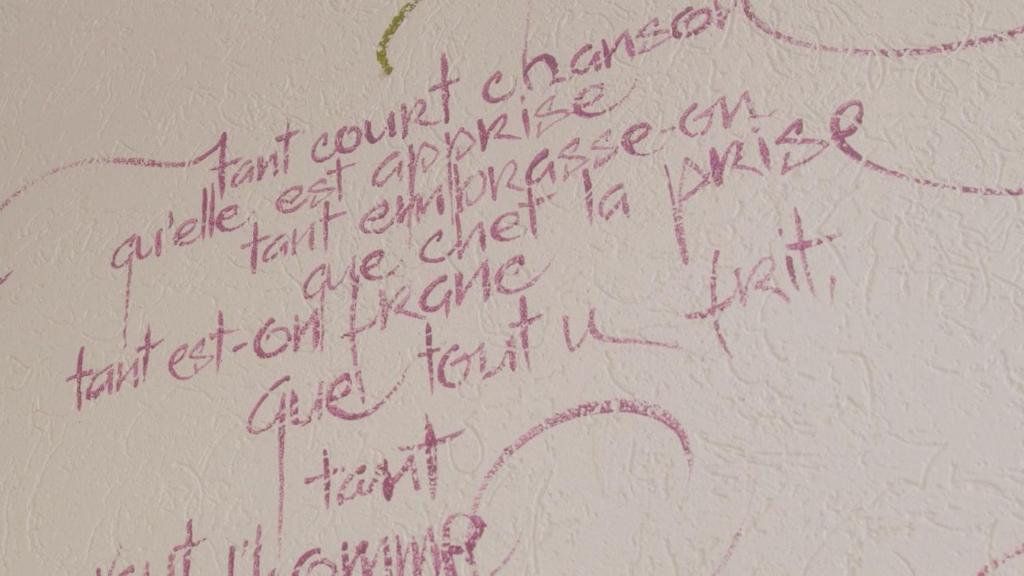 tant court chanson
qu'elle est apprise
tant embrasse-on
que chet la prise
tant est-on franc
quel tout u frit,
tant
vaut l'homme